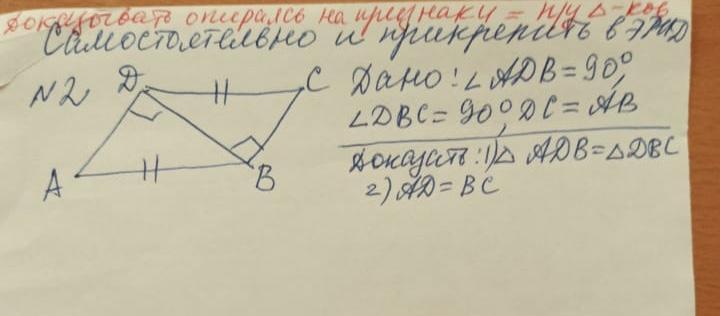 Доказывать опираясь на признаки = п/у Δ-ков
Самостоятельно и прикрепить в ЭЖД
№2 D C Дано: ∠ADB = 90°,
∠DBC = 90°, DC = AB
A B Доказать: 1) Δ ADB = Δ DBC
2) AD = BC